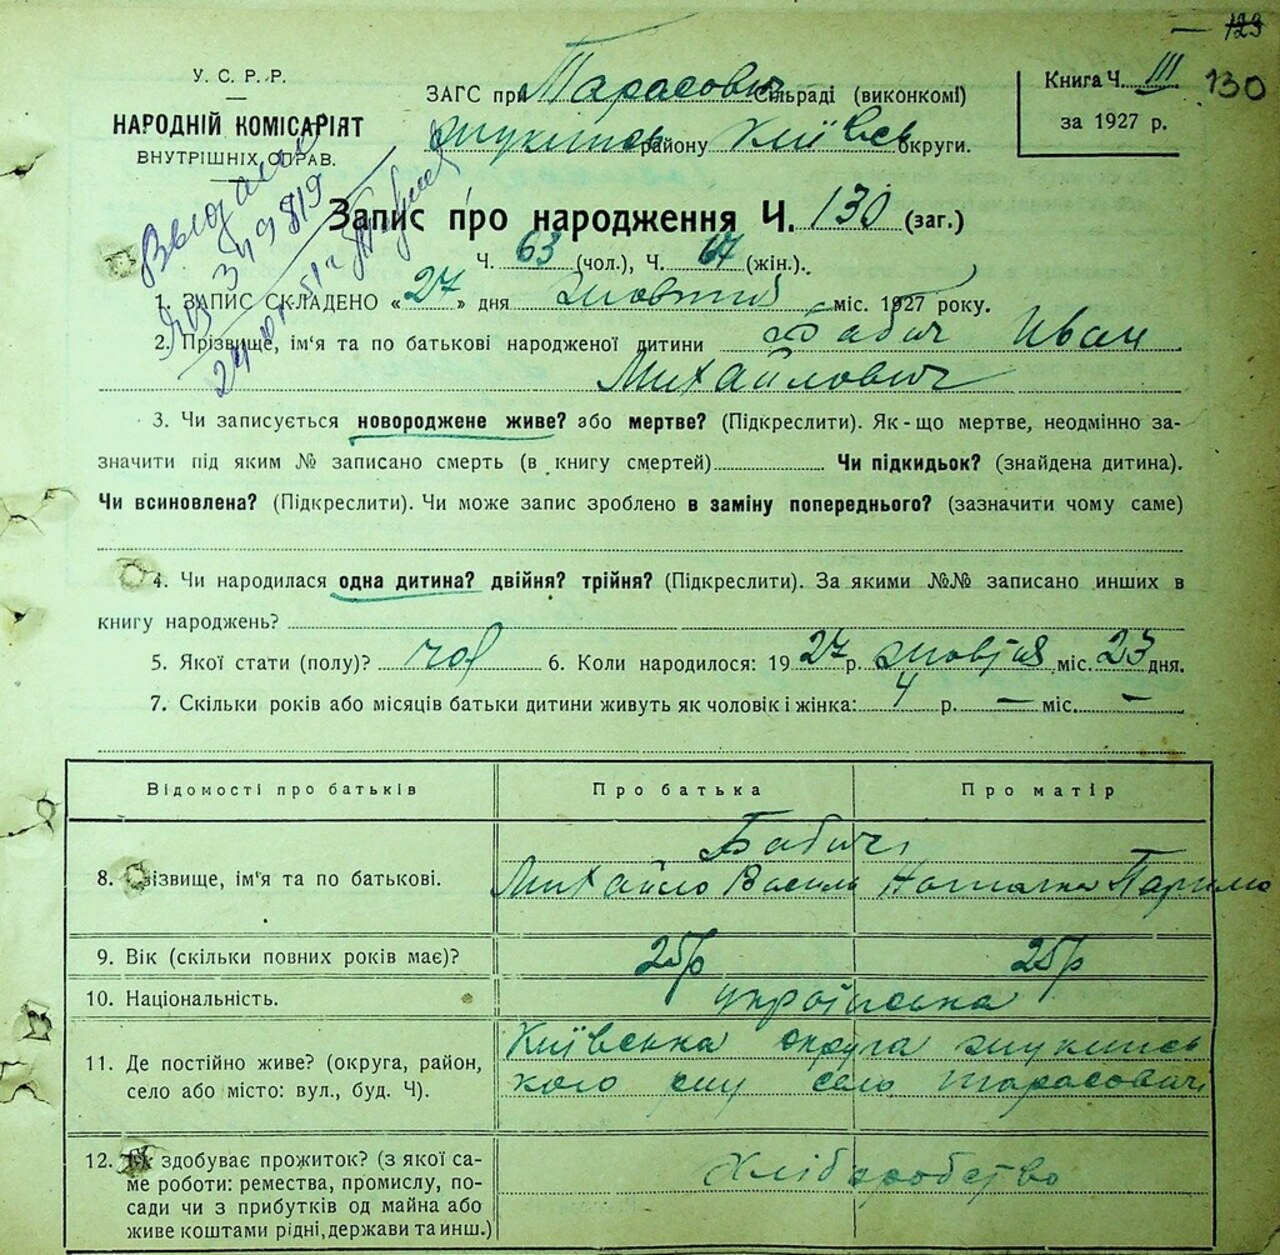 129
У. С. Р. Р.
НАРОДНІЙ КОМІСАРІЯТ
ВНУТРІШНІХ СПРАВ.
ЗАГС при Тарасович Сільраді (виконкомі)
району Київськ округи.
Книга Ч. III 130
за 1927 р.
Запис про народження Ч. 130 (заг.)
Ч. 63 (чол.), Ч. 67 (жін.).
1. ЗАПИС СКЛАДЕНО «27» дня жовтня міс. 1927 року.
2. Прізвище, ім'я та по батькові народженої дитини Бабич Иван
Михайлович
3. Чи записується новороджене живе? або мертве? (Підкреслити). Як-що мертве, неодмінно за-
значити під яким № записано смерть (в книгу смертей) Чи підкидьок? (знайдена дитина).
Чи всиновлена? (Підкреслити). Чи може запис зроблено в заміну попереднього? (зазначити чому саме)
4. Чи народилася одна дитина? двійня? трійня? (Підкреслити). За якими №№ записано инших в
книгу народжень?
5. Якої стати (полу)? чол 6. Коли народилося: 1927 р. жовтня міс. 23 дня.
7. Скільки років або місяців батьки дитини живуть як чоловік і жінка: 4 р. — міс. —
Відомості про батьків Про батька Про матір
Бабичі
8. Прізвище, ім'я та по батькові. Михайло Василь
9. Вік (скільки повних років має)? 25 р 25 р
10. Національність. українська
11. Де постійно живе? (округа, район,
село або місто: вул., буд. Ч).
Київська округа
кого село Тарасовичі
12. Як здобуває прожиток? (з якої са-
ме роботи: ремества, промислу, по-
сади чи з прибутків од майна або
живе коштами рідні, держави та инш.)
Хліборобство